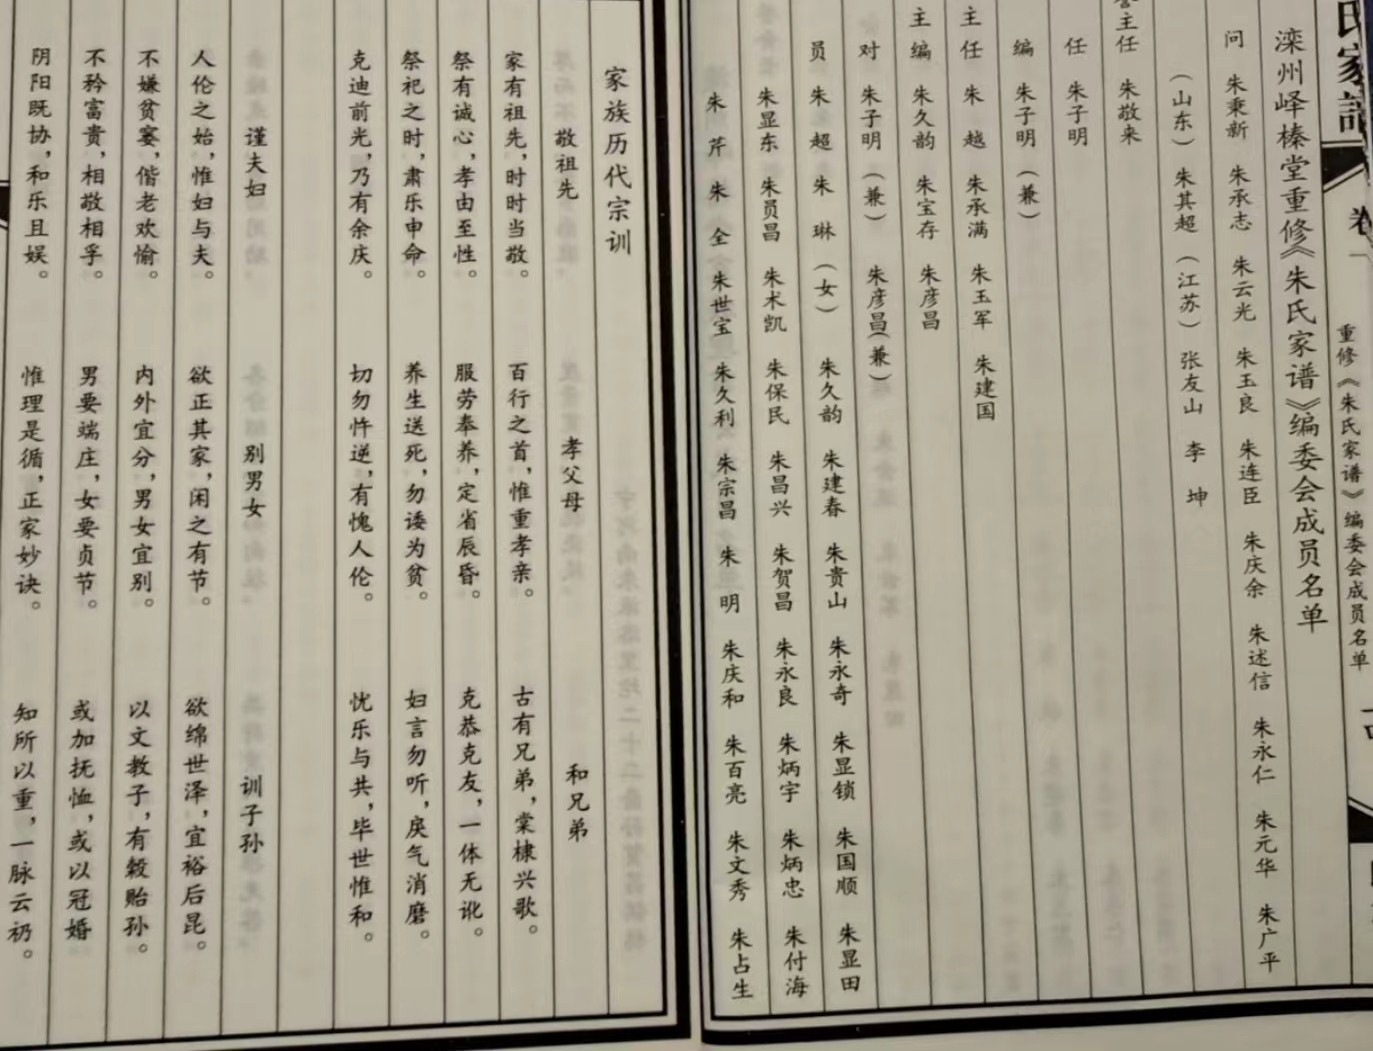 氏家谱
卷一
重修《朱氏家谱》编委会成员名单
滦州峄榛堂重修《朱氏家谱》编委会成员名单
问 朱秉新 朱承志 朱云光 朱玉良 朱连臣 朱庆余 朱述信 朱永仁 朱元华 朱广平
（山东）朱其超（江苏）张友山 李坤
主任 朱敬来
任 朱子明
编 朱子明（兼）
主任 朱越 朱承满 朱玉军 朱建国
主编 朱久韵 朱宝存 朱彦昌
对 朱子明（兼） 朱彦昌（兼）
员 朱超 朱琳（女） 朱久韵 朱建春 朱贵山 朱永奇 朱显锁 朱国顺 朱显田
朱显东 朱员昌 朱术凯 朱保民 朱昌兴 朱贺昌 朱永良 朱炳宇 朱炳忠 朱付海
朱芹 朱全 朱世宝 朱久利 朱宗昌 朱明 朱庆和 朱百亮 朱文秀 朱占生
家族历代宗训
敬祖先 孝父母 和兄弟
家有祖先，时时当敬。 百行之首，惟重孝亲。 古有兄弟，棠棣兴歌。
祭有诚心，孝由至性。 服劳奉养，定省辰昏。 克恭克友，一体无讹。
祭祀之时，肃乐申命。 养生送死，勿诿为贫。 妇言勿听，戾气消磨。
克迪前光，乃有余庆。 切勿忤逆，有愧人伦。 忧乐与共，毕世惟和。
谨夫妇 别男女 训子孙
人伦之始，惟妇与夫。 欲正其家，闲之有节。 欲绵世泽，宜裕后昆。
不嫌贫窭，偕老欢愉。 内外宜分，男女宜别。 以文教子，有榖贻孙。
不矜富贵，相敬相孚。 男要端庄，女要贞节。 或加抚恤，或以冠婚
阴阳既协，和乐且娱。 惟理是循，正家妙诀。 知所以重，一脉云礽。